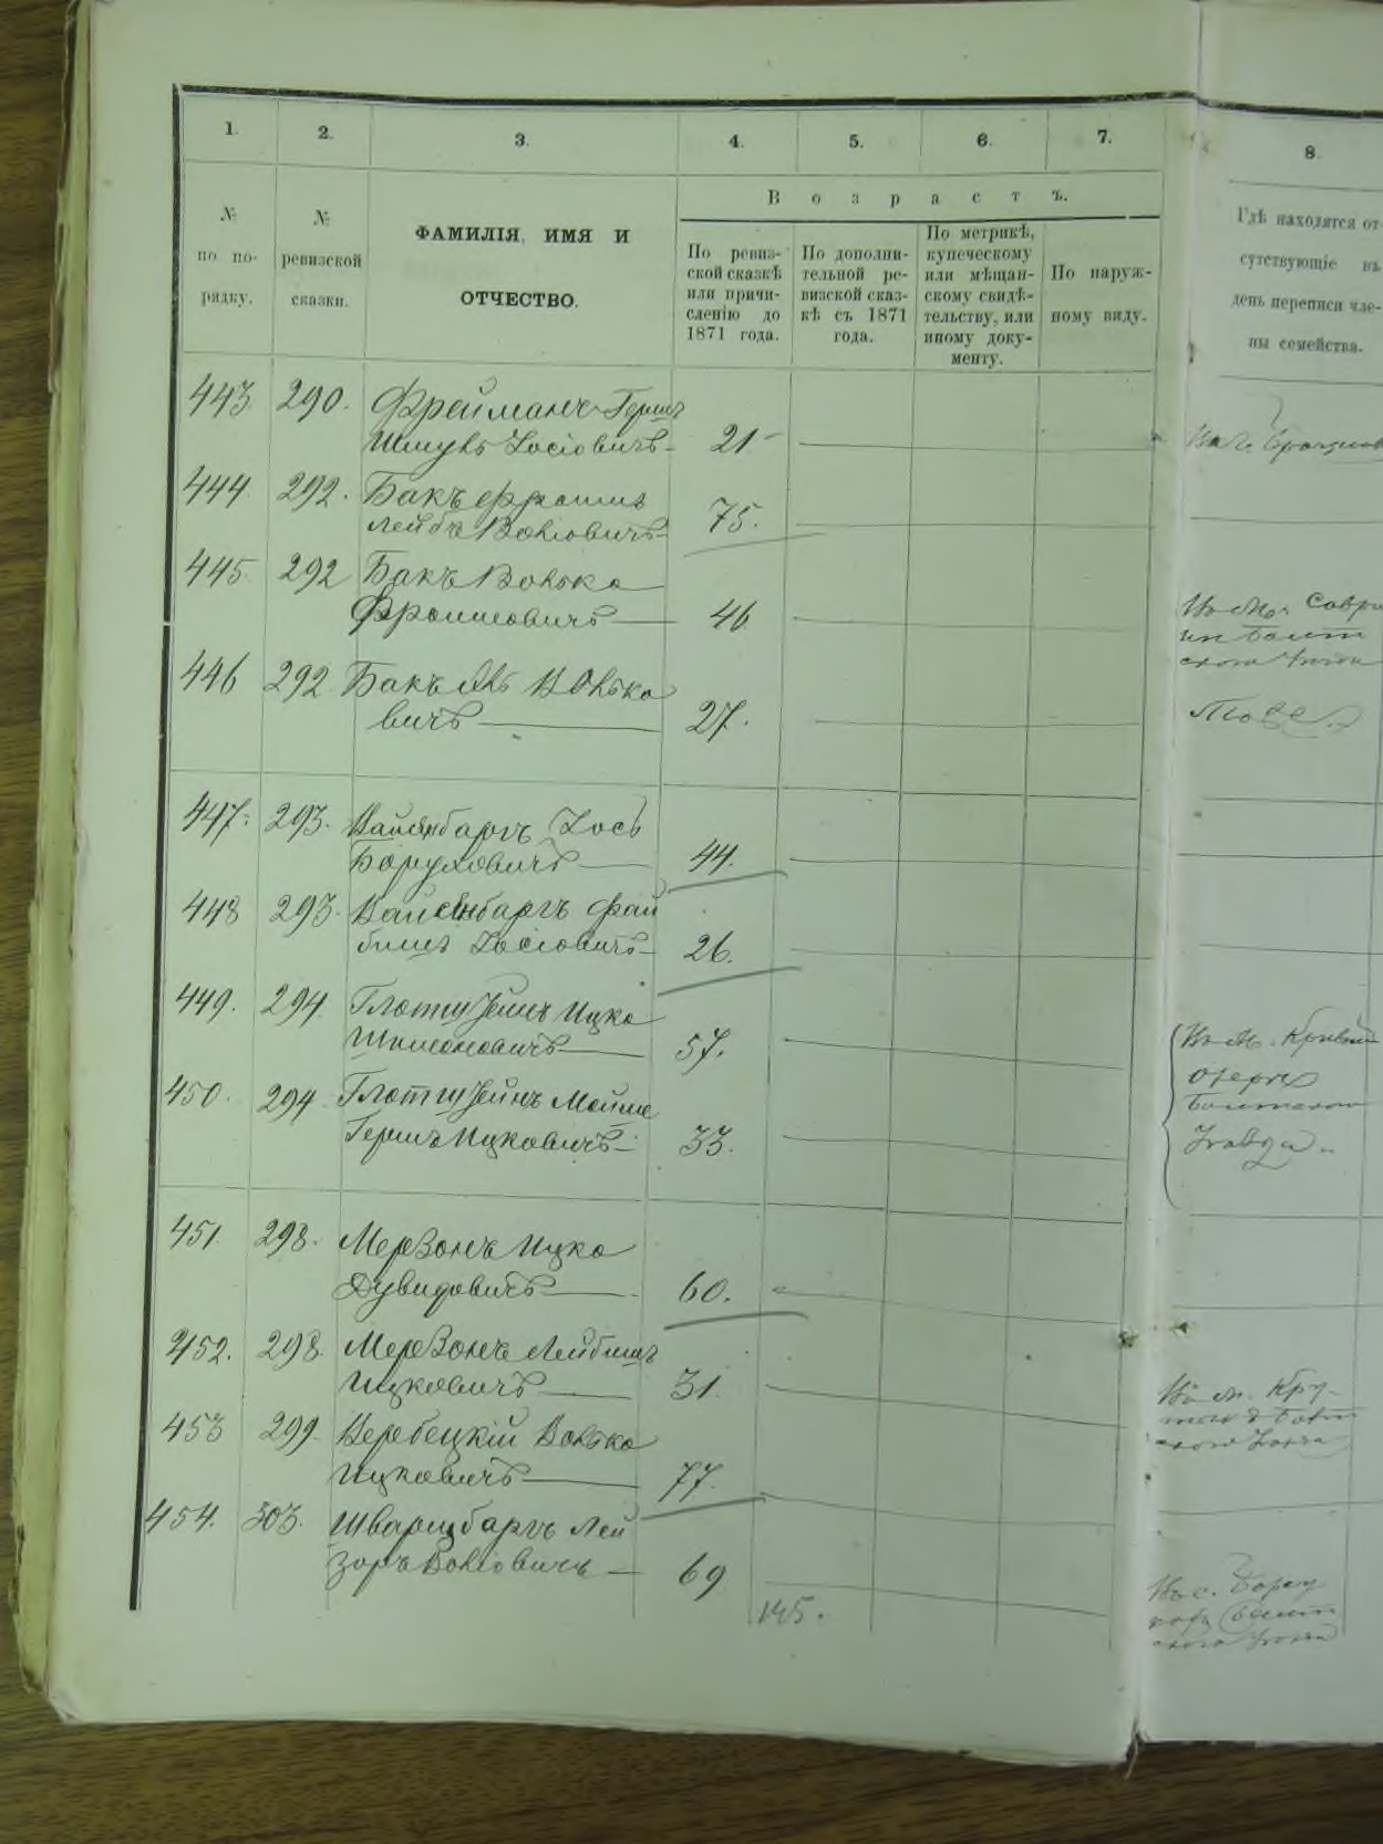 1. 2. 3. 4. 5. 6. 7. 8.
В о з р а с т ъ.
№ по по-рядку.
№ ревизской сказки.
ФАМИЛІЯ, ИМЯ И
ОТЧЕСТВО.
По ревиз-
ской сказкѣ
или причи-
сленію до
1871 года.
По дополни-
тельной ре-
визской сказ-
кѣ съ 1871
года.
По метрикѣ,
купеческому
или мѣщан-
скому свидѣ-
тельству, или
иному доку-
менту.
По наруж-
ному виду.
Гдѣ находятся от-
сутствующіе въ
день переписи чле-
ны семейства.
443. 290. Фрейманъ Герш
Шмуль Іосіовичъ 21
444 292. Бакъ Фроимъ
Лейбъ Волiовичъ 75.
445 292 Бакъ Волько
Фроимовичъ 46
Въ м. Саври
ни Балт
446 292 Бакъ Янъ Волько
вичъ 27.
Тоже
447. 293. Вайсянбаргъ Іось
Боруховичъ 44.
448 293. Вайсенбаргъ Фай
бишъ Іосіовичъ 26.
449. 294 Глотшуейнъ Ицко
Шимоновичъ 57.
Въ м. Кривом
озерѣ
Балтскаго
Уѣзда
450. 294 Глотшуейнъ Мошко
Гершъ Ицковичъ 33.
451. 298. Мервонъ Ицко
Дувидовичъ 60.
452. 298. Мервонъ Лейбишъ
Ицковичъ 31.
Въ м. Кру-
453 299. Веребецкій Волько
Ицковичъ 77.
454. 303. Шварцбаргъ Лей
зоръ Волiовичъ 69
145.